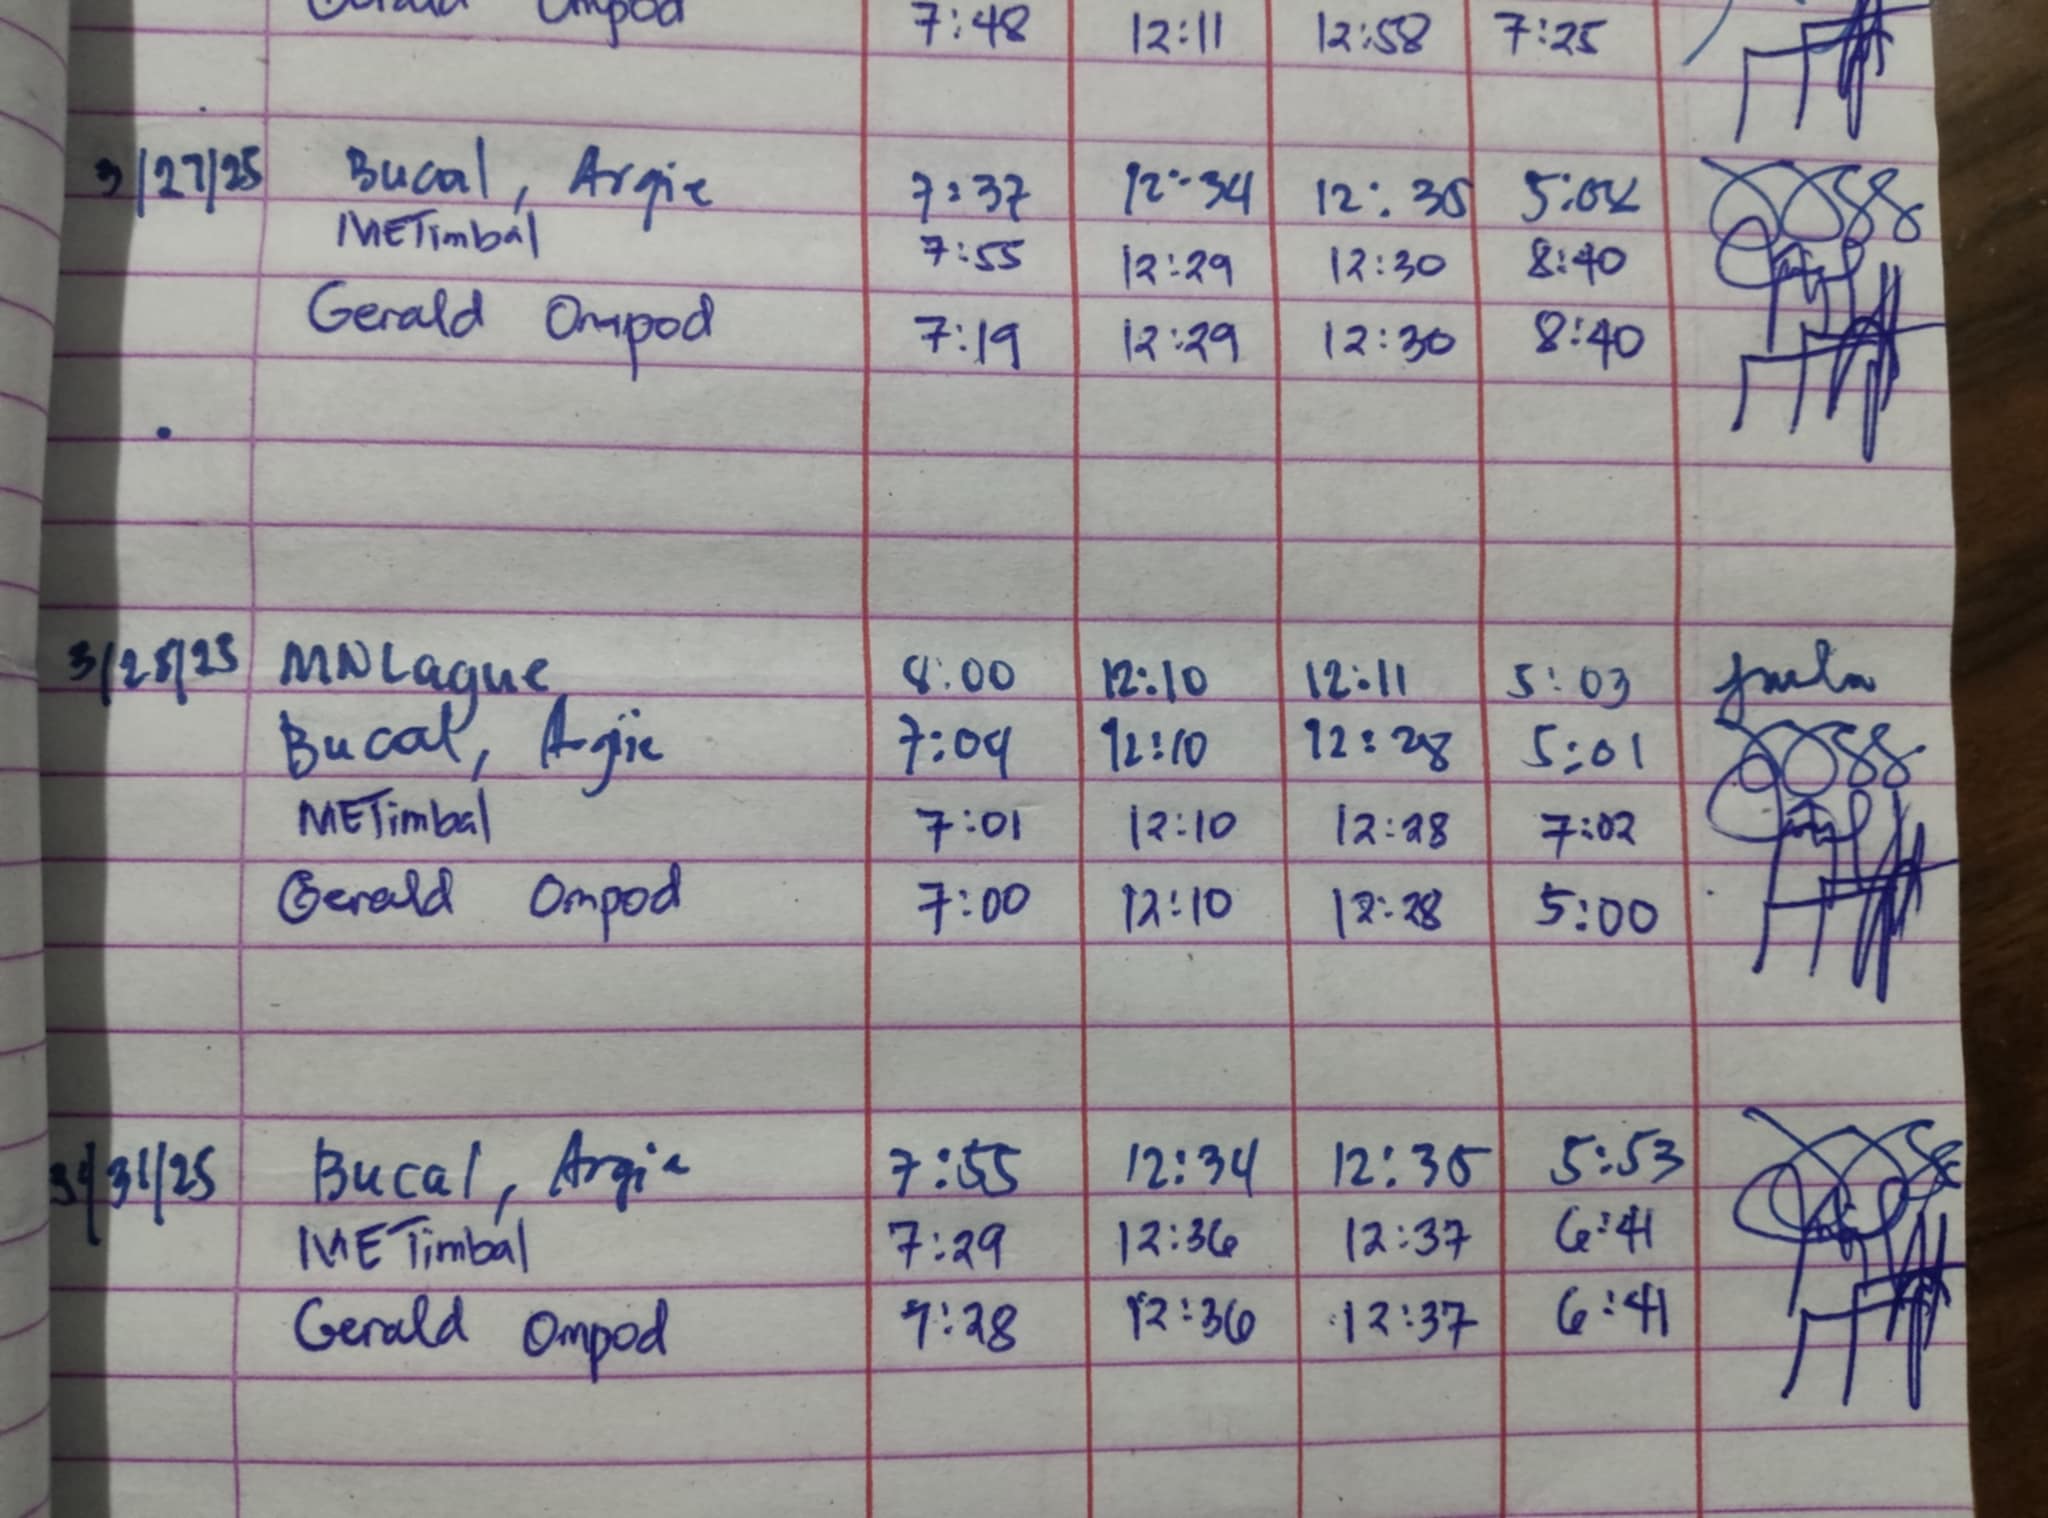 Gerald Ompod 7:48 12:11 12:58 7:25
3/27/25 Bucal, Argie 7:37 12:34 12:35 5:04
METimbal 7:55 12:29 12:30 8:40
Gerald Ompod 7:19 12:29 12:30 8:40
3/28/25 MNLague 8:00 12:10 12:11 5:03
Bucal, Argie 7:09 12:10 12:28 5:01
METimbal 7:01 12:10 12:28 7:02
Gerald Ompod 7:00 12:10 12:28 5:00
3/31/25 Bucal, Argie 7:55 12:34 12:35 5:53
METimbal 7:29 12:36 12:37 6:41
Gerald Ompod 7:28 12:36 12:37 6:41